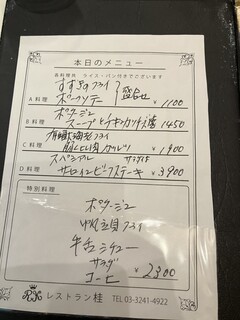 本日のメニュー
各料理共 ライス・パン付きでございます
すずきのフライ
A料理 ポークソテー 盛合せ ¥1100
ポタージュ
B料理 スープ チキンカツ 1450
有頭海老フライ
C料理 ¥1900
スペシャル サラダ付
D料理 サーロインビーフステーキ ¥3,900
特別料理
ポタージュ
帆立貝フライ
牛舌シチュー
サラダ
コーヒー ¥2300
レストラン桂 TEL 03-3241-4922